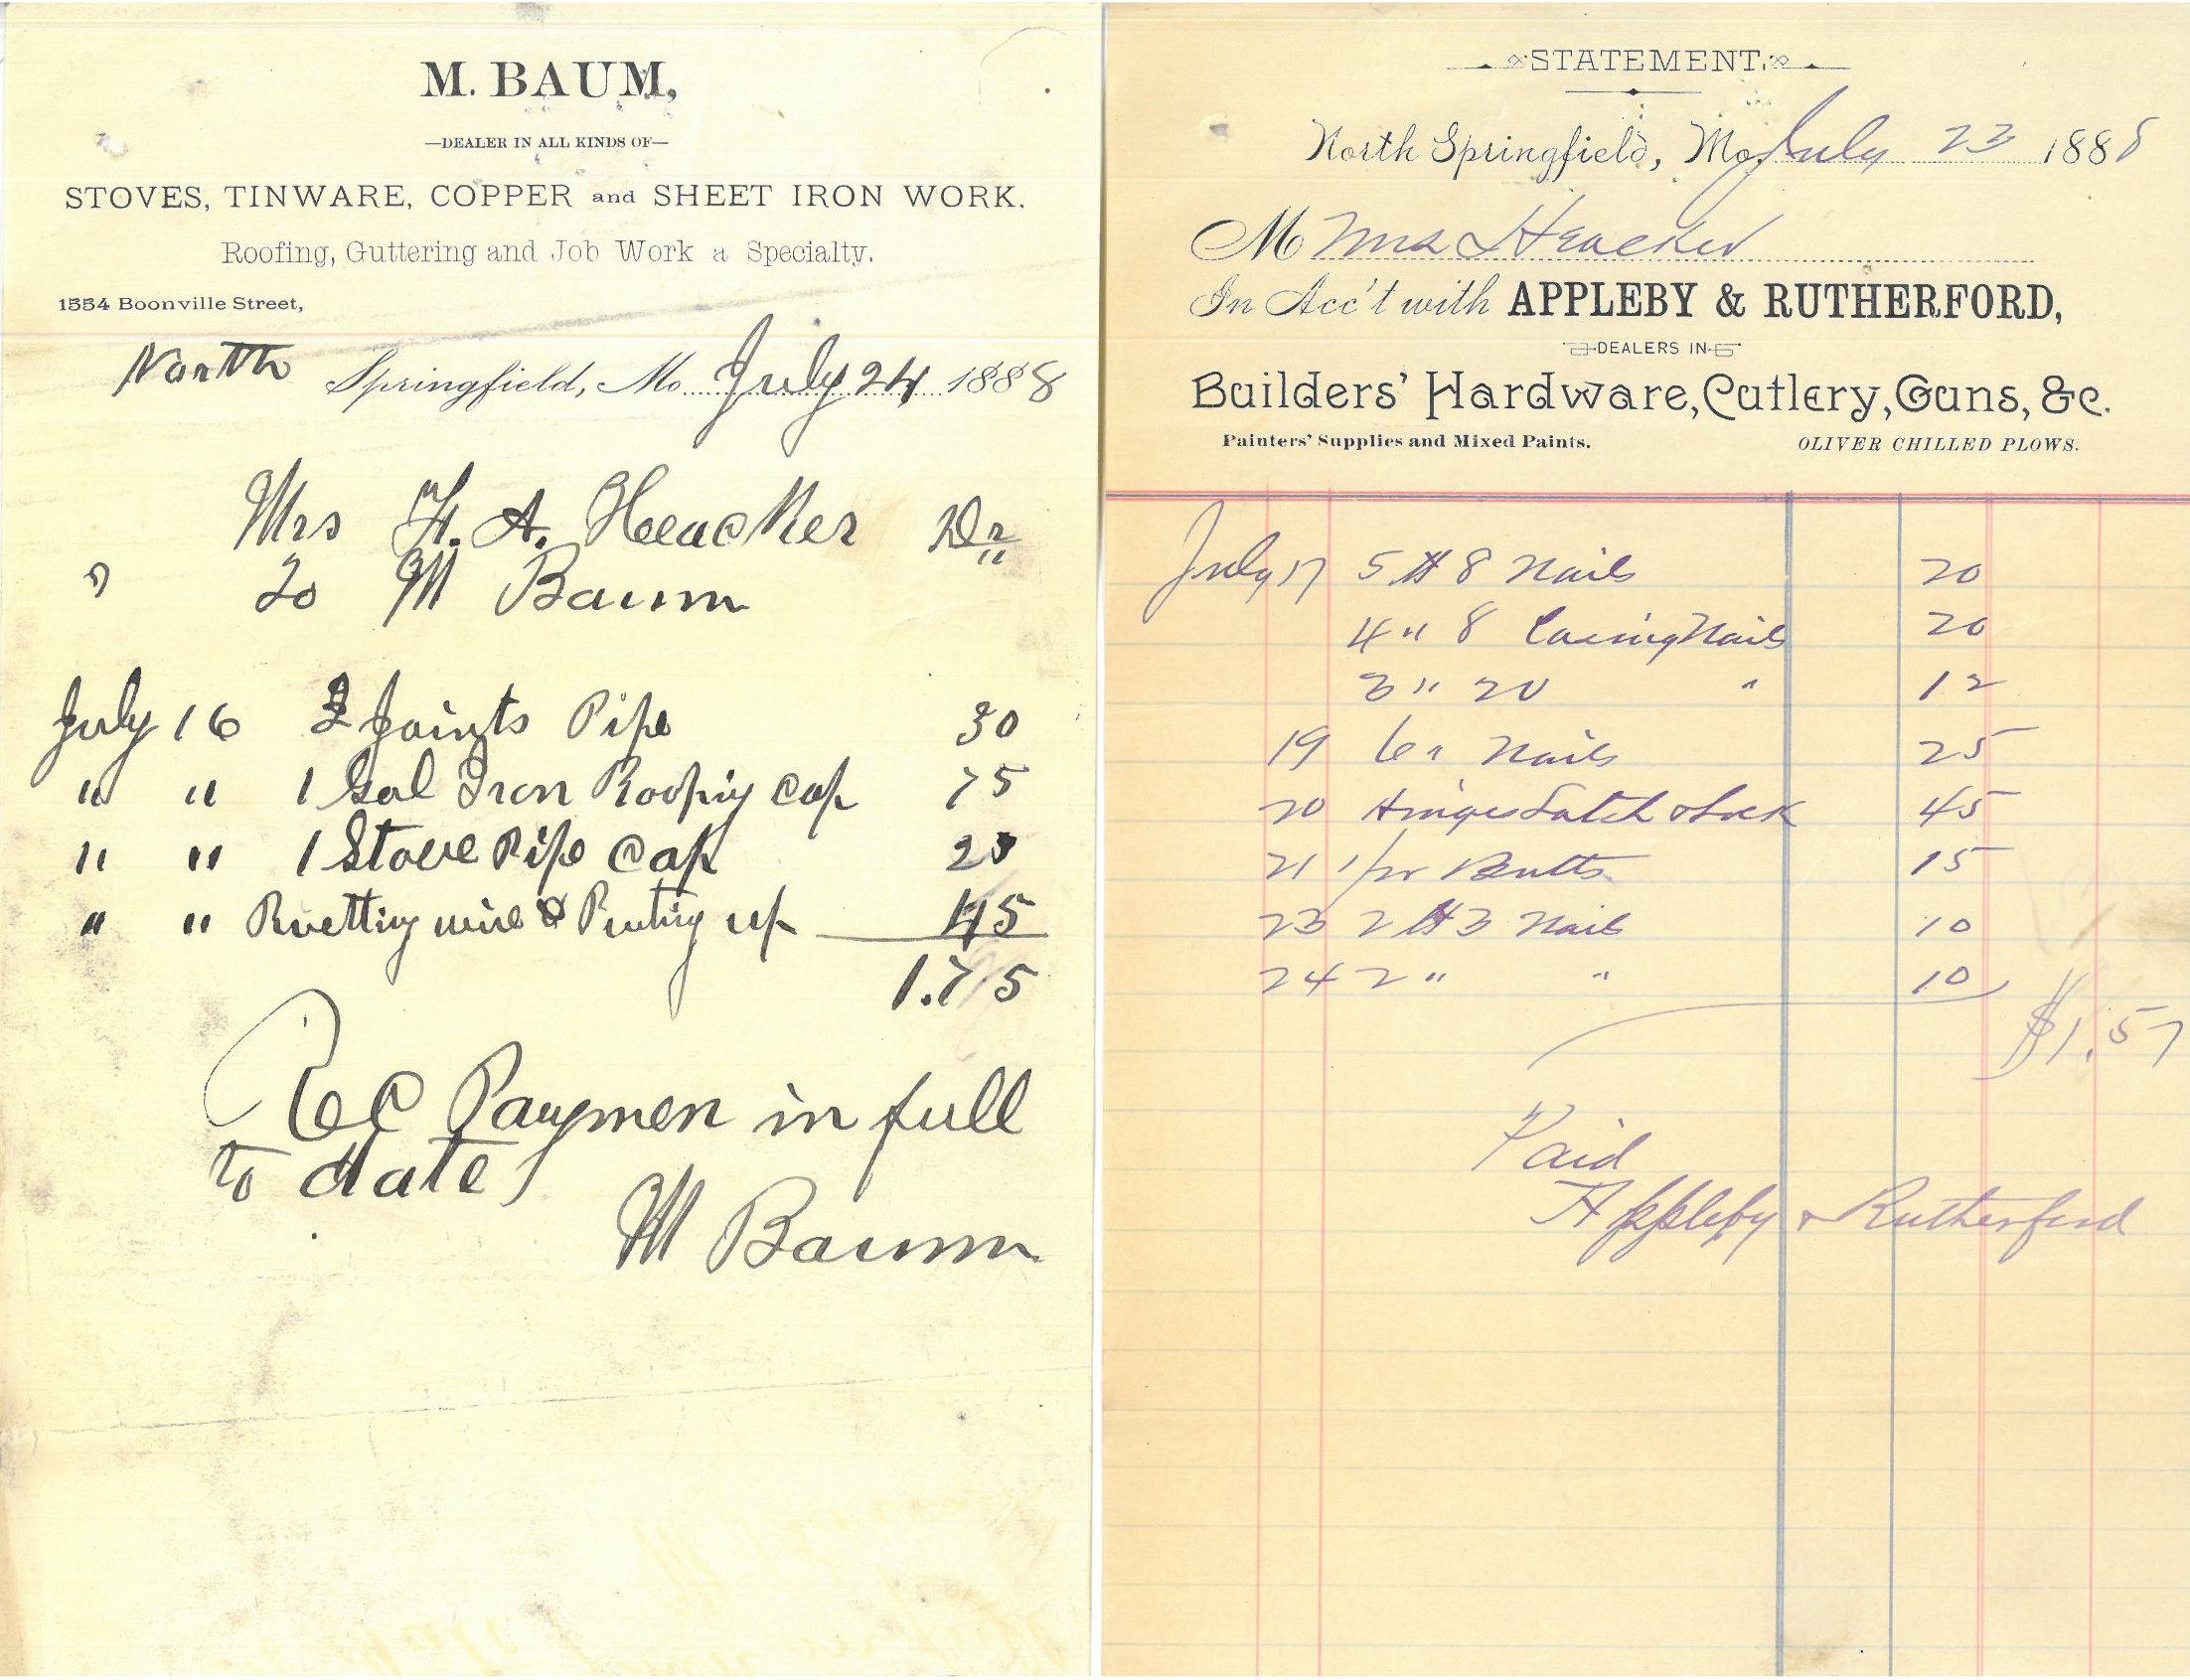 M. BAUM,
—DEALER IN ALL KINDS OF—
STOVES, TINWARE, COPPER and SHEET IRON WORK.
Roofing, Guttering and Job Work a Specialty.
1554 Boonville Street,
North Springfield, Mo. July 24 1888
Mrs H. A. Heacker Dr
" To M Baum
July 16 2 Joints Pipe 30
" " 1 Gal Iron Roofing Cap 75
" " 1 Stove Pipe Cap 25
" " Rivetting wire & Puting up 45
1.75
Rec Paymen in full
to date
M Baum
STATEMENT.
North Springfield, Mo. July 23 1888
M Mrs Heacker
In Acc't with APPLEBY & RUTHERFORD,
DEALERS IN
Builders' Hardware, Cutlery, Guns, &c.
Painters' Supplies and Mixed Paints. OLIVER CHILLED PLOWS.
July 17 5 # 8 Nails 20
4 " 8 Casing Nails 20
3 " 20 " 12
19 6 " Nails 25
20 Hinges Latch & Lock 45
21 1 pr Butts 15
23 2 # 3 Nails 10
24 2 " " 10
$1.57
Paid
Appleby & Rutherford